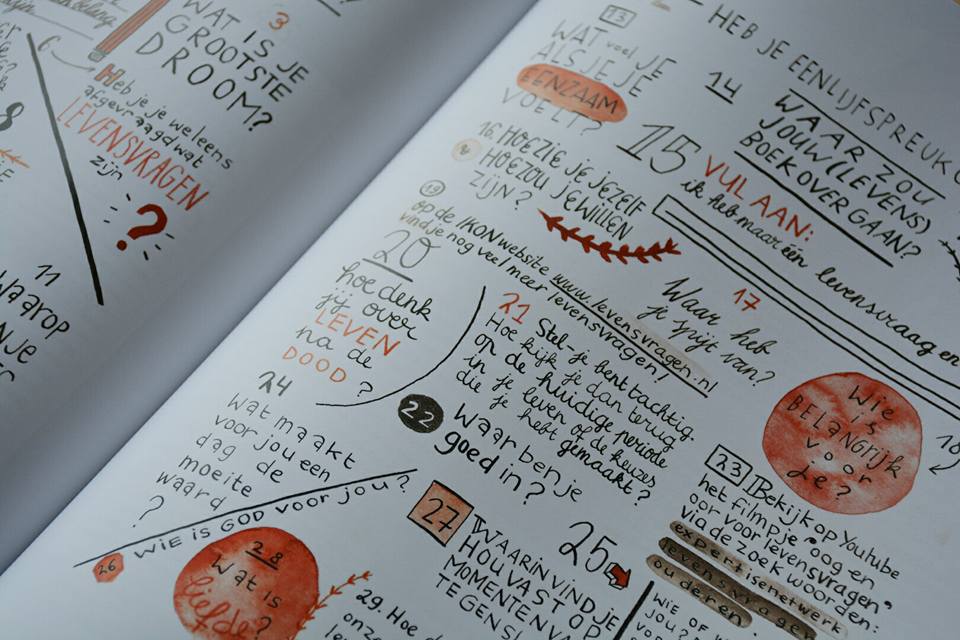 3
WAT IS JE
GROOTSTE
DROOM?
6
Heb je je weleens
afgevraagd wat
LEVENSVRAGEN
zijn
?
8
11
Waarop
13
WAT voel JE
ALS JE JE
EENZAAM
VOELT?
HEB JE EEN LIJFSPREUK
14
WAAR ZOU
JOUW (LEVENS)
BOEK OVER GAAN?
15 VUL AAN:
ik heb maar één levensvraag en
16 HOE ZIE JE JEZELF
HOE ZOU JE WILLEN
ZIJN?
17
Waar heb
je spijt van?
18
Wie
is
BELANGRIJK
voor
Je?
19
op de IKON website www.levensvragen.nl
vind je nog veel meer levensvragen!
20
hoe denk
jij over
LEVEN
na de
DOOD
?
21 Stel je bent tachtig.
Hoe kijk je dan terug
op de huidige periode
in je leven of de keuzes
die je hebt gemaakt?
22
Waar ben je
goed in?
23 Bekijk op Youtube
het filmpje 'oog en
oor voor levensvragen'
via de zoekwoorden:
expertisenetwerk
levensvragen
ouderen
24
wat maakt
voor jou een
dag de
moeite
waard
?
25
WIE OF W
JOU?
26
WIE IS GOD VOOR JOU?
27
WAARIN VIND JE
HOUVAST OP
MOMENTEN VA
TEGENS
28
Wat is
liefde?
29. Hoe d
onze